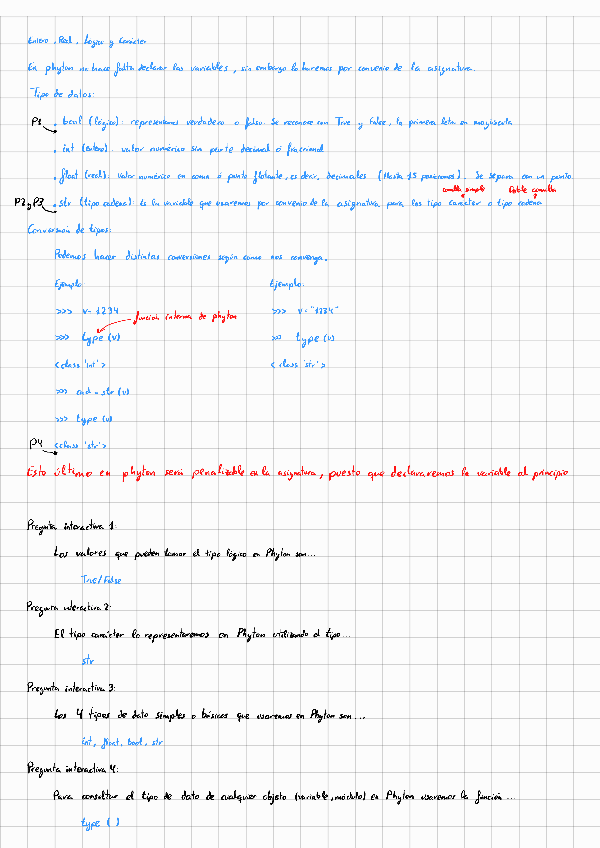 Entero, Real, Lógico y Carácter
En phyton no hace falta declarar las variables, sin embargo lo haremos por convenio de la asignatura.
Tipo de datos:
P1 . bool (lógico): representamos verdadero o falso. Se reconoce con True y False, la primera letra en mayúscula
. int (entero): valor numérico sin parte decimal o fraccional
. float (real): valor numérico en coma o punto flotante, es decir, decimales (Hasta 15 posiciones). Se separa con un punto
comilla simple doble comilla
P2 y P3 . str (tipo cadena): Es la variable que usaremos por convenio de la asignatura para los tipo carácter o tipo cadena
Conversión de tipos:
Podemos hacer distintas conversiones según como nos convenga.
Ejemplo Ejemplo:
>>> v=1234 >>> v="1234"
función interna de phyton
>>> type (v) >>> type (v)
<class 'int'> <class 'str'>
>>> cad = str (v)
>>> type (v)
P4 <class 'str'>
Esto último en phyton será penalizable en la asignatura, puesto que declararemos la variable al principio
Pregunta interactiva 1:
Los valores que pueden tomar el tipo lógico en Phyton son...
True/False
Pregunta interactiva 2:
El tipo carácter lo representaremos en Phyton utilizando el tipo...
str
Pregunta interactiva 3:
Los 4 tipos de dato simples o básicos que usaremos en Phyton son...
int, float, bool, str
Pregunta interactiva 4:
Para consultar el tipo de dato de cualquier objeto (variable, módulo) en Phyton usaremos la función ...
type ( )